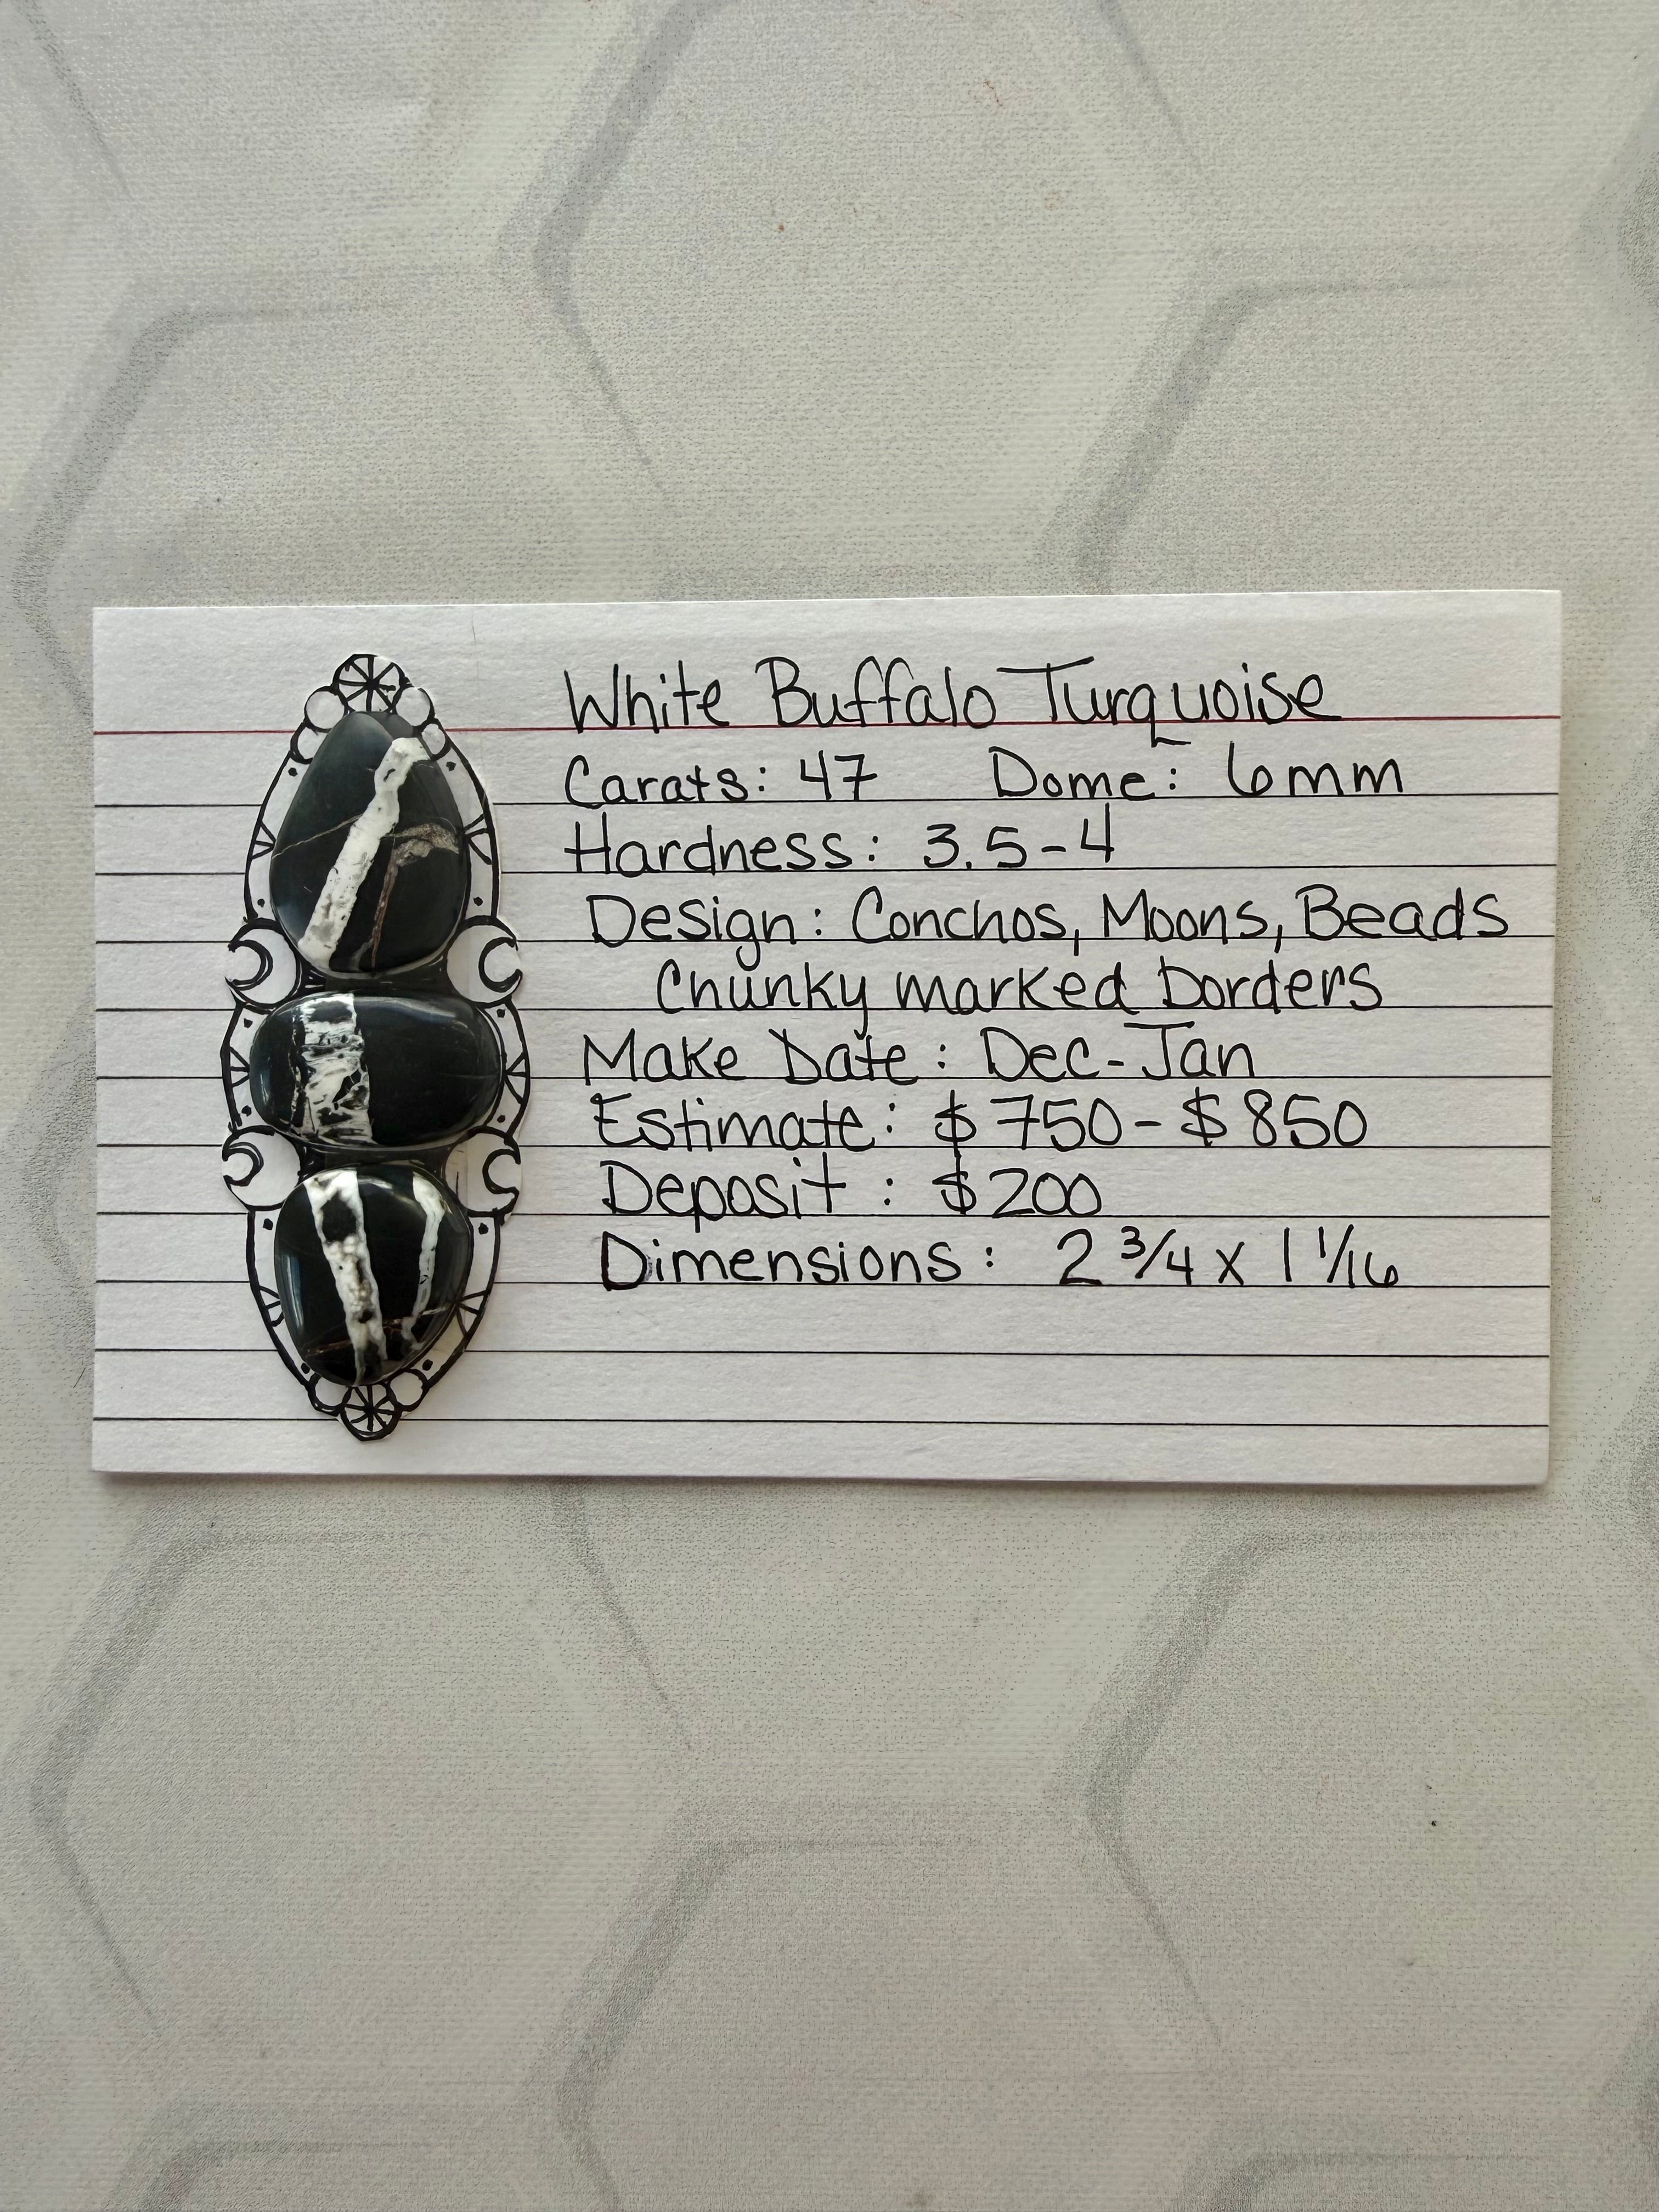 White Buffalo Turquoise
Carats: 47 Dome: 6mm
Hardness: 3.5-4
Design: Conchos, Moons, Beads
Chunky marked borders
Make Date: Dec-Jan
Estimate: $750-$850
Deposit: $200
Dimensions: 2 3/4 x 1 1/16